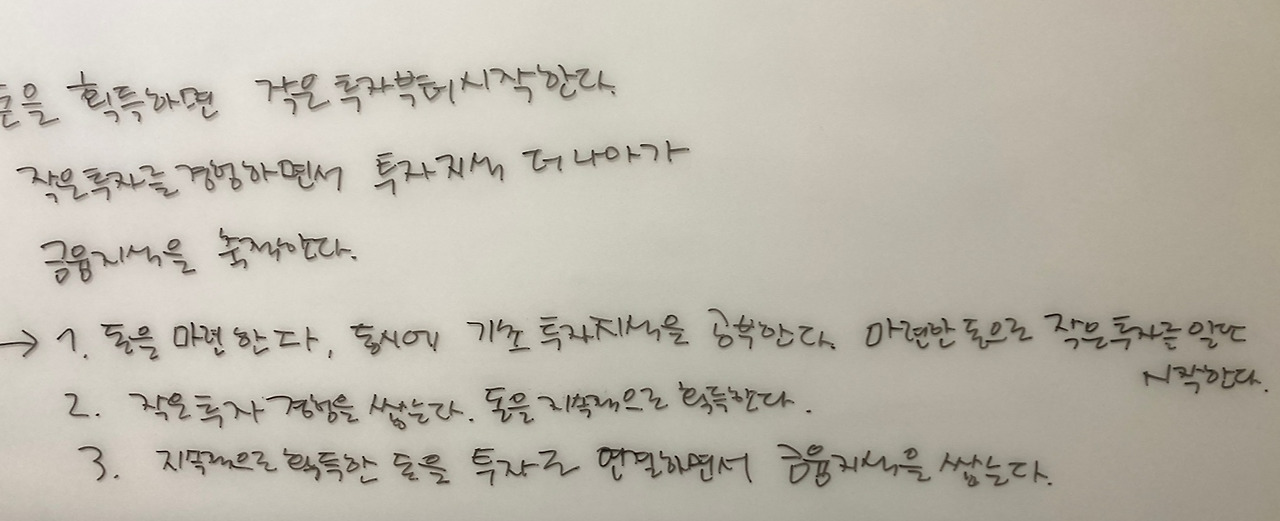 돈을 획득하면 작은 투자부터 시작한다.
작은 투자를 경험하면서 투자지식 더 나아가
금융지식을 축적한다.
→ 1. 돈을 마련한다, 동시에 기초 투자지식을 공부한다. 마련한 돈으로 작은 투자를 일단
시작한다.
2. 작은 투자 경험을 쌓는다. 돈을 지속적으로 획득한다.
3. 지속적으로 획득한 돈을 투자로 연결하면서 금융지식을 쌓는다.